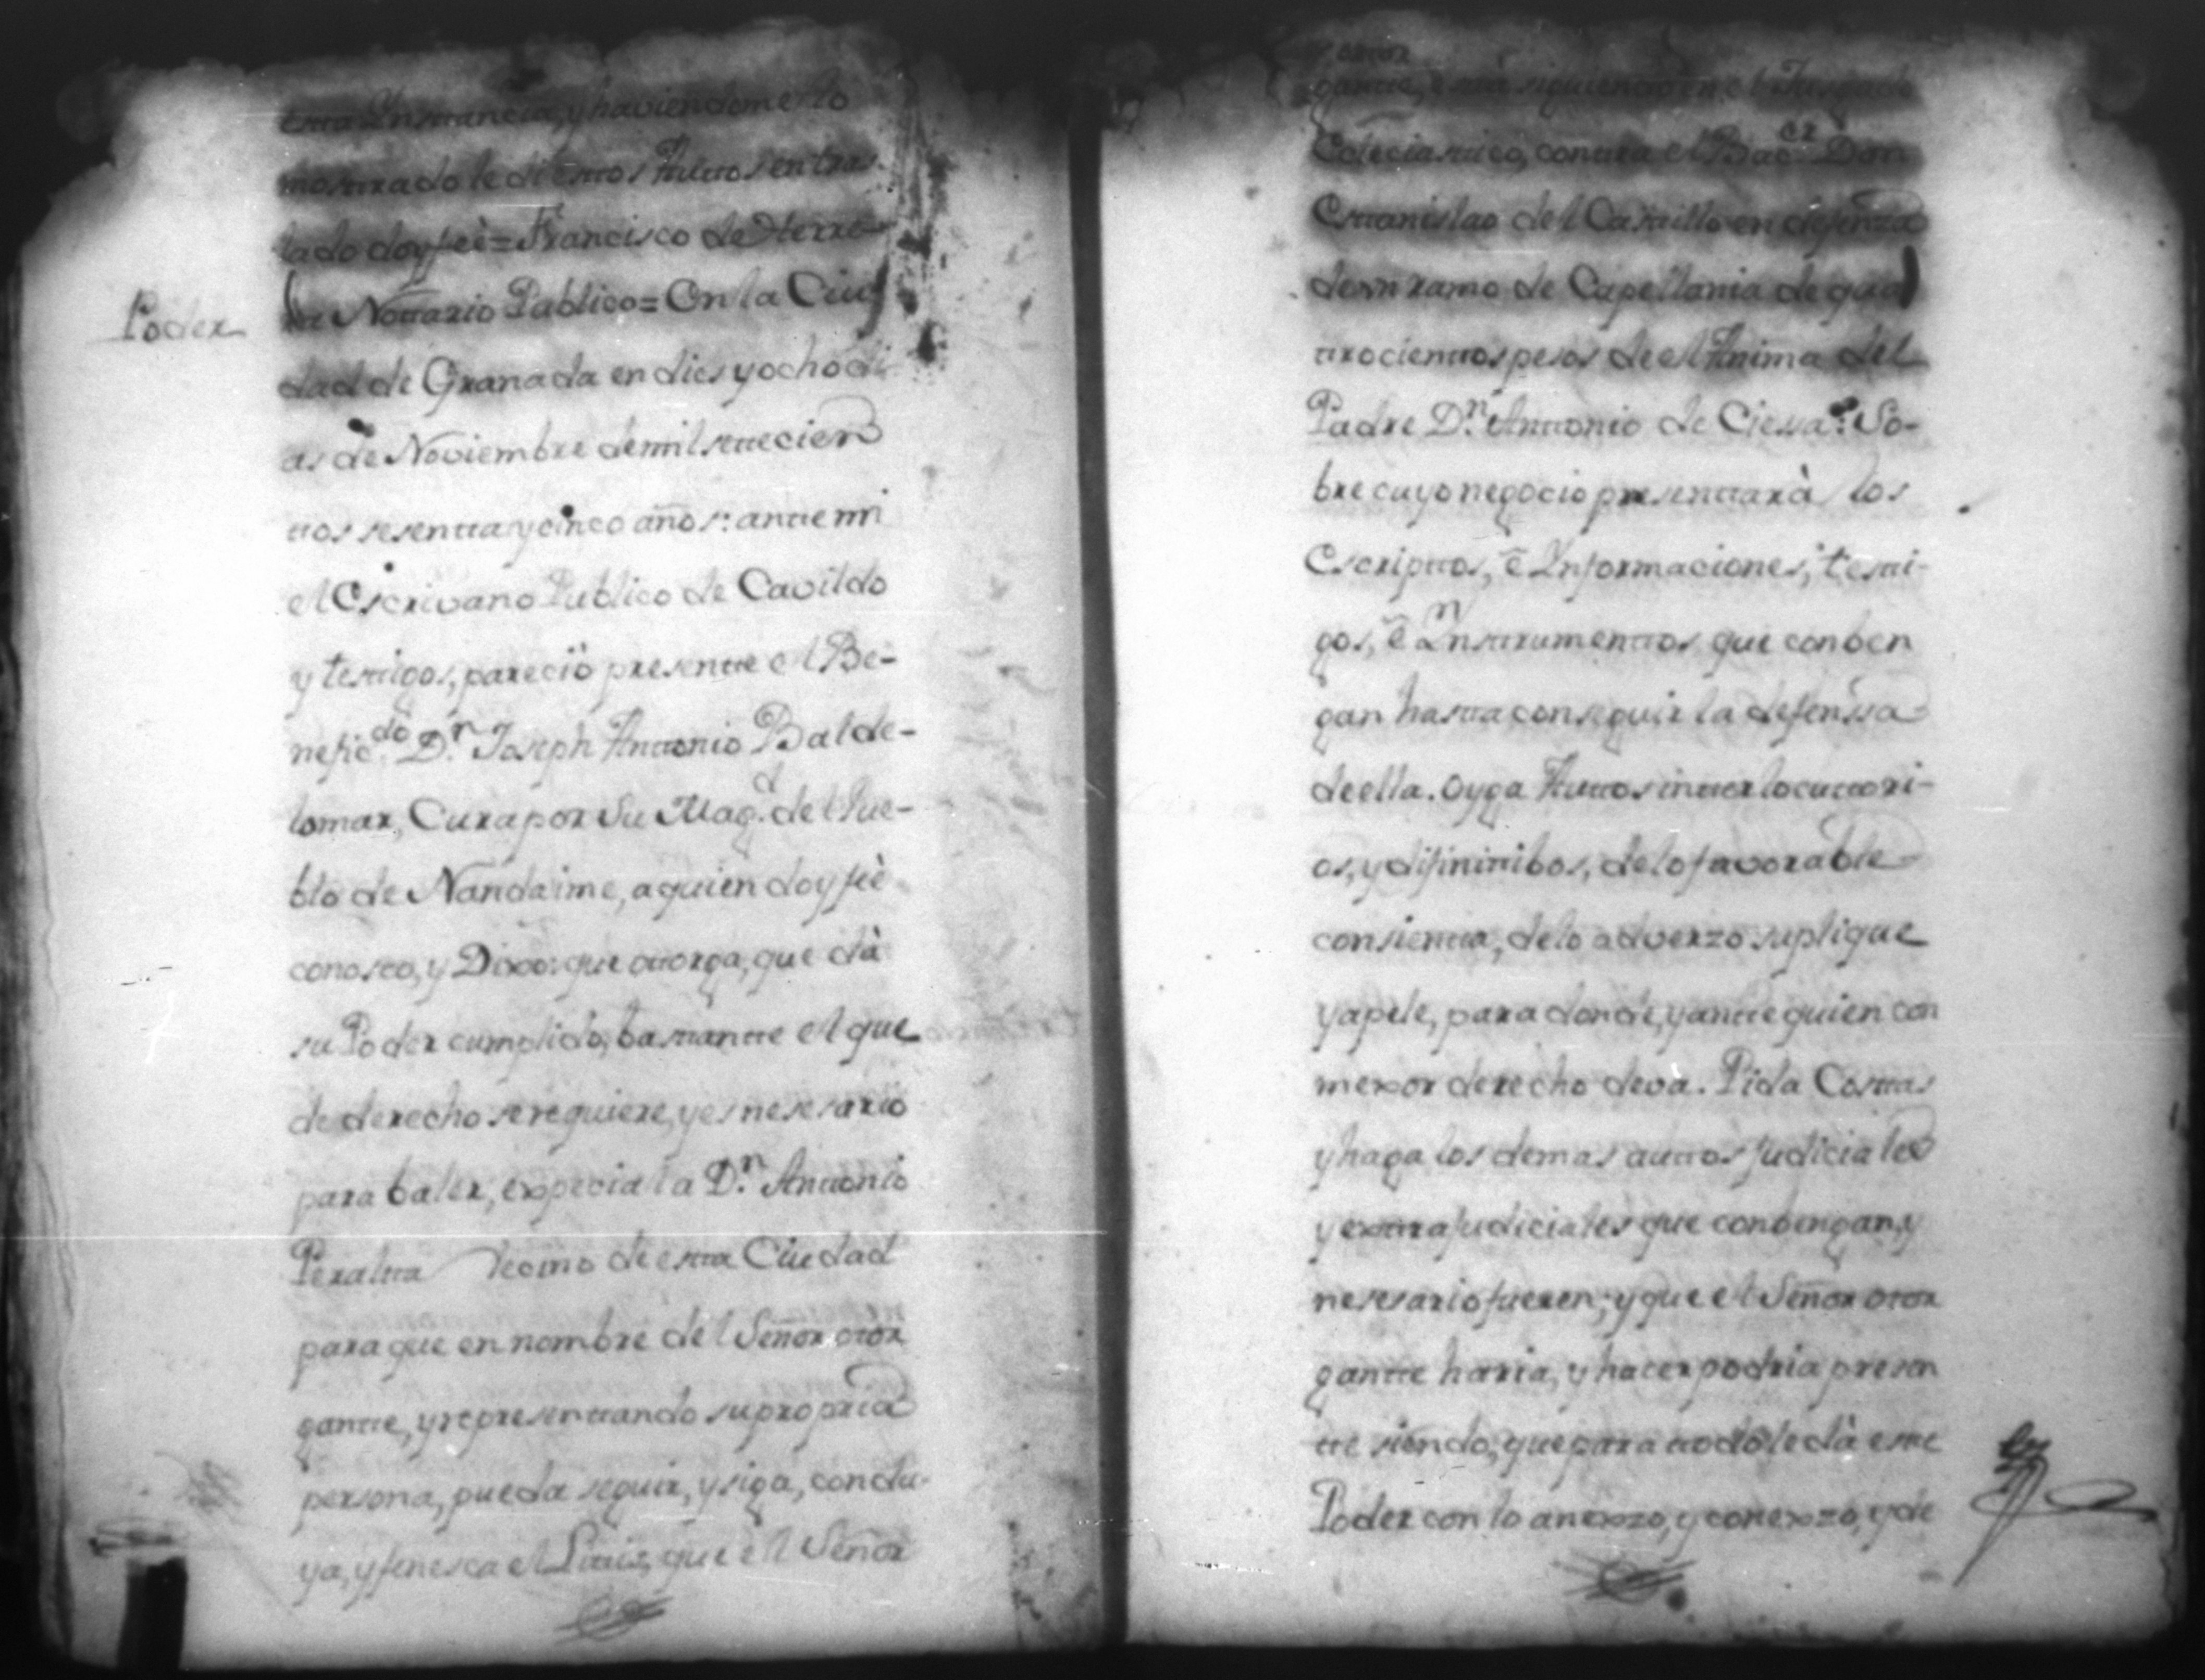 esta Instancia, y haviendome lo
mostrado le di estos Autos en tras
lado doy feè = Francisco de Herre
ra Nottario Publico = En la Ciu
Poder
dad de Granada en dies y ocho di
as de Noviembre de mil settecien
ttos sesentta y cinco años: antte mi
el Escrivano Publico de Cavildo
y testigos, pareciò presentte el Be-
nefic.do D.n Joseph Anttonio Balde-
lomar, Cura por Su Mag.d del Pue-
blo de Nandaime, a quien doy feè
conosco, y Dixo: que ottorga, que dà
su Poder cumplido, basttantte el que
de derecho se requiere, y es nesesario
para baler, expecial a D.n Anttonio
Peraltta Vecino de estta Ciudad
para que en nombre del Señor ottor
gantte, y representtando su propria
persona, pueda seguir, y siga, conclu
ya, y fenesca el Litis, que el Señor
gantte, està siguiendo en el Jusgado
Eclesiasttico, conttra el Bac.er Don
Esttanislao del Casttillo en defenza
de un ramo de Capellania de qua
ttrocienttos pesos de el Anima del
Padre D.n Anttonio de Ciessa: So-
bre cuyo negocio presenttarà los
Escripttos, ê Informaciones, testti-
gos, ê Insttrumenttos que conben
gan hastta conseguir la defenssa
de ella. Oyga Auttos intterlocuttori-
os, y difinitibos, de lo favorable
consientta, de lo adverzo suplique
y apele, para donde, y antte quien con
mexor derecho deva. Pida Costtas
y haga los demas auttos judiciales
y exttrajudiciales que conbengan, y
nesesario fueren; y que el Señor ottor
gantte haria, y hacer podria presen
tte siendo, que para ttodo le dà estte
Poder con lo anexzo, y conexzo, y de